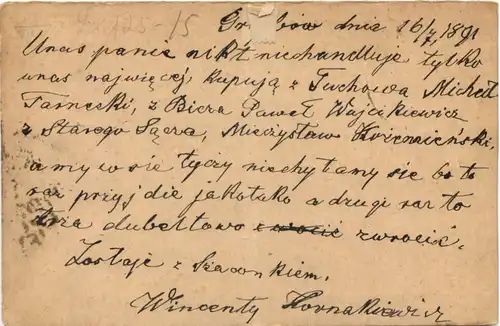 225-15
dnia 16/7 1891
Unas panie nikt niehandluje tylko
unas najwięcej kupują z Tuchowa Michał
Tarnecki, z Biecza Paweł Wojcikiewicz
z Starego Sącza, Mieczysław
a my w sie tyczy niechytamy się bo to
raz przyjdie jakotako a drugi raz to
trza dubeltowo zwrocić.
Zostaje z Szacunkiem.
Wincenty